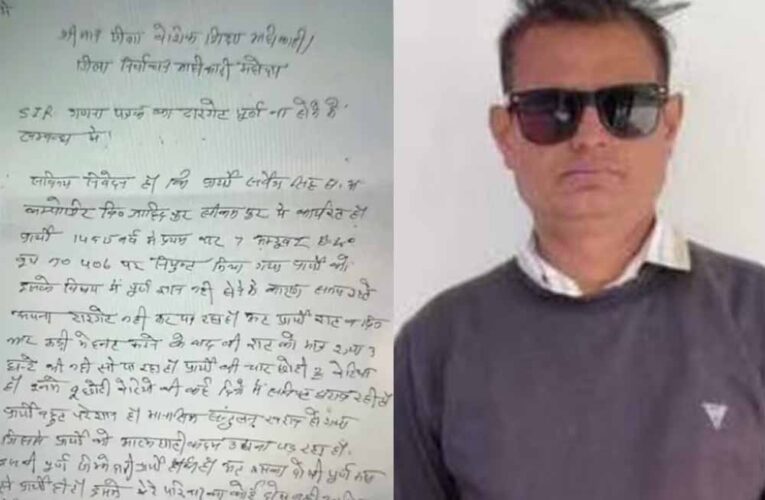 श्रीमान जिला बेसिक शिक्षा अधिकारी/
जिला निर्वाचन अधिकारी महोदय
SIR गणना प्रपत्र का टारगेट पूर्ण ना होने के
सम्बन्ध में।
सविनय निवेदन है कि प्रार्थी सर्वेश सिंह स.अ
कम्पोजिट वि० में कार्यरत है।
प्रार्थी वर्ष में प्रथम बार 7 अक्टूबर B.L.O
न० 406 पर नियुक्त किया गया प्रार्थी को
इसके विषय में पूर्ण ज्ञान नही होने के कारण समय रहते
अपना टारगेट नही कर पा रहा है। प्रार्थी रात व दिन
कड़ी मेहनत करने के बाद भी रात को मात्र 2 या 3
घन्टे ही नही सो पा रहा है। प्रार्थी की चार छोटी बेटिया
है। इनमे 2 छोटी बेटियो की कई दिनो से तबियत खराब रही है
प्रार्थी बहुत परेशान है। मानसिक संतुलन खराब हो गया
जिससे प्रार्थी को आत्मघाती कदम उठाना पड़ रहा है।
इसकी पूर्ण जिम्मेदारी प्रार्थी की है। दोषी पूर्ण रूप
से प्रार्थी ही है। इसमे मेरे परिवार का कोई दोष नही